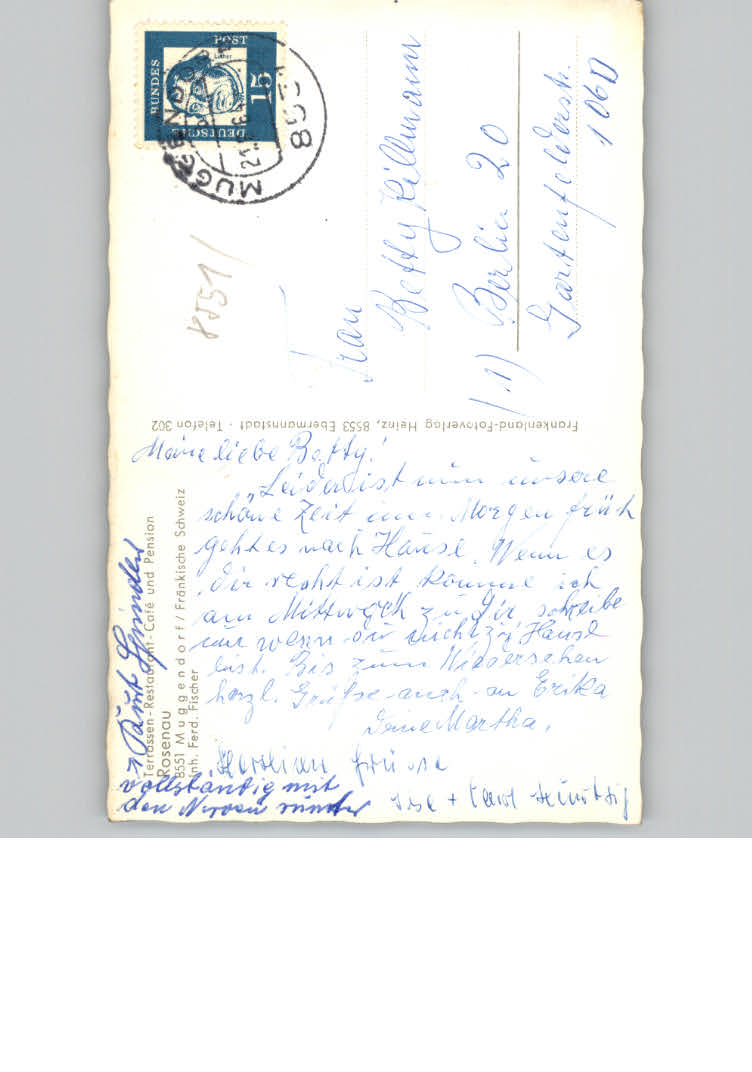 DEUTSCHE
BUNDES
POST
Luther
15
MUGGENDORF
8551
8551/
Frau
Betty Killmann
(1) Berlin 20
Gartenfelderstr.
106D
Frankenland-Fotoverlag Heinz, 8553 Ebermannstadt · Telefon 302
Meine liebe Betty!
Leider ist nun unsere
schöne Zeit um. Morgen früh
geht es nach Hause. Wenn es
Dir recht ist komme ich
am Mittwoch zu Dir schreibe
nur wenn du nicht zu Hause
bist. Bis zum Wiedersehen
herzl. Grüße auch an Erika
Deine Martha.
Herzlichen Grüsse
Terrassen-Restaurant-Café und Pension
Rosenau
8551 Muggendorf / Fränkische Schweiz
Inh. Ferd. Fischer
vollständig mit
den Nerven runter